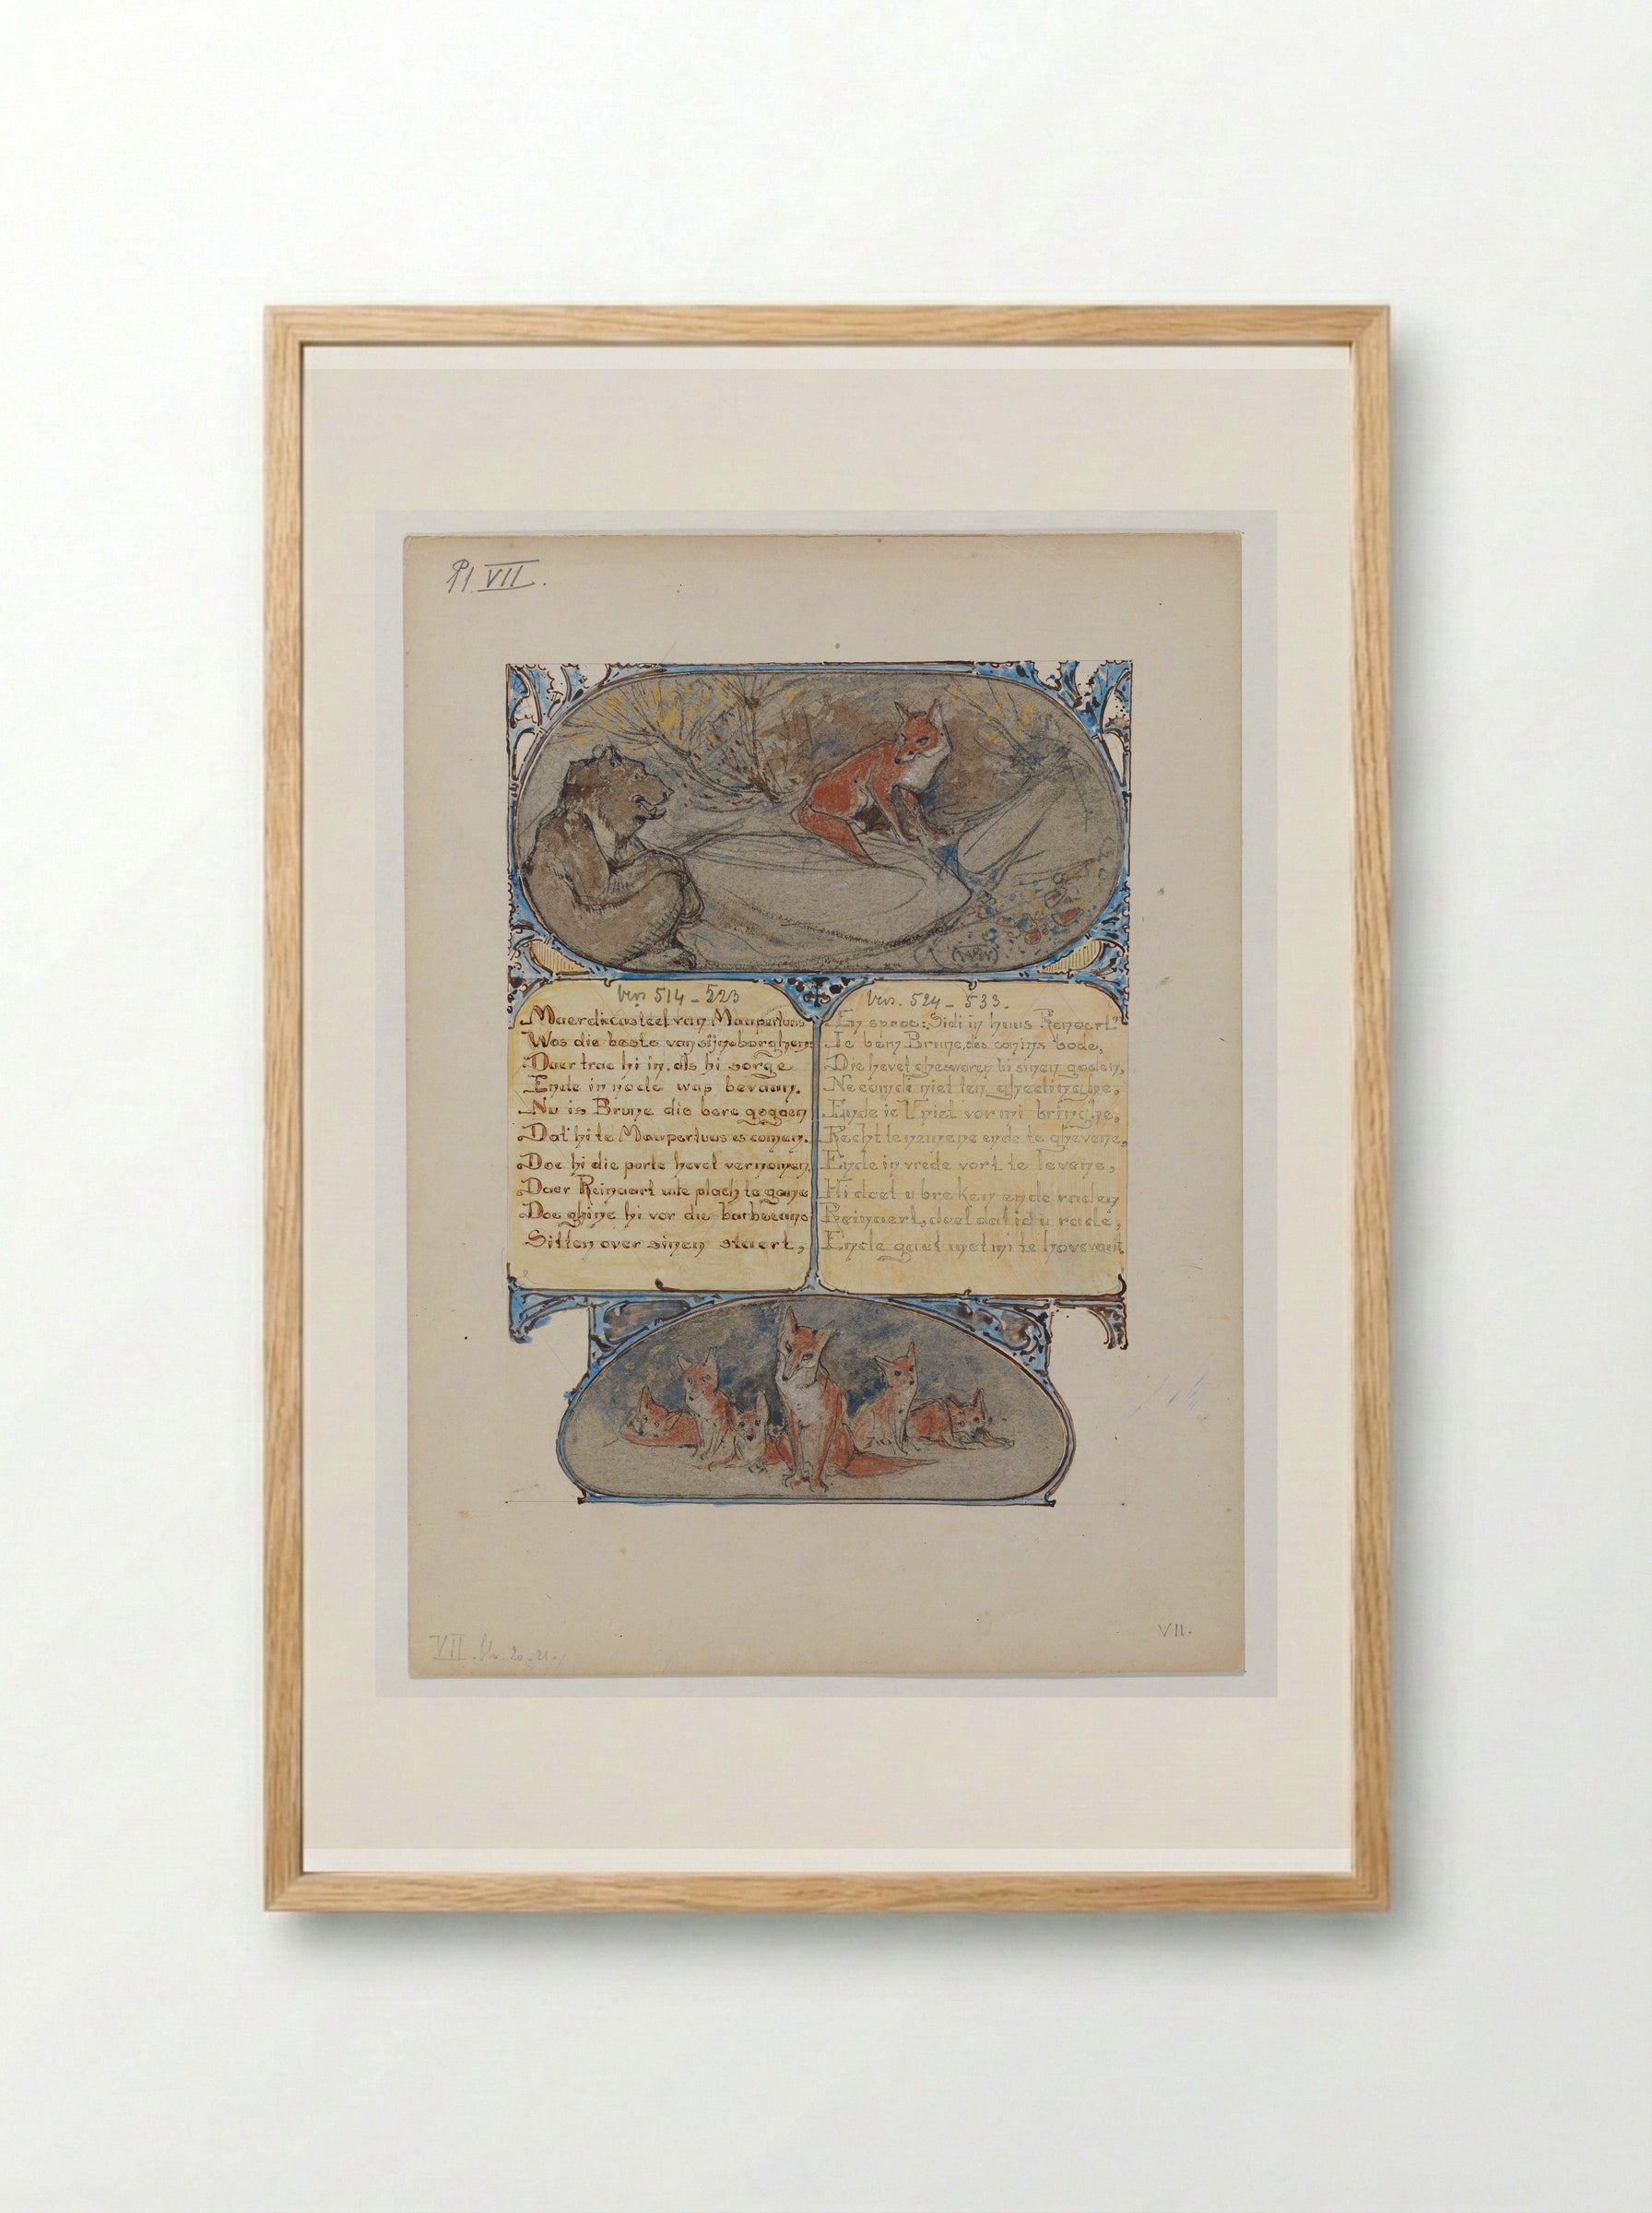 Pl. VII.
Vers 514 - 523
Maer die casteel van Maupertuus
Was die beste van sijne borghen
Daer trac hi in, als hi sorge
Ende in node was bevaan.
Nu is Brune die bere gegaen
Dat hi te Maupertuus es comen.
Doe hi die porte hevet vernomen,
Daer Reinaert ute plach te gane
Doe ghinc hi vor die barbecane
Sitten over sinen staert,
Vers. 524 - 533.
En sprac: Sidi in huus Renaert?
Ic ben Brune, des conins bode,
Die hevet ghesworen bi sinen goden,
Ne comdi niet ten ghedinghe,
Ende ic U niet vor mi bringhe,
Recht te nemene ende te ghevene,
Ende in vrede vort te levene,
Hi doet u breken ende raden
Reinaert, doet dat ic u rade,
Ende gaet met mi te hovewaert
VII. 20-21.
VII.